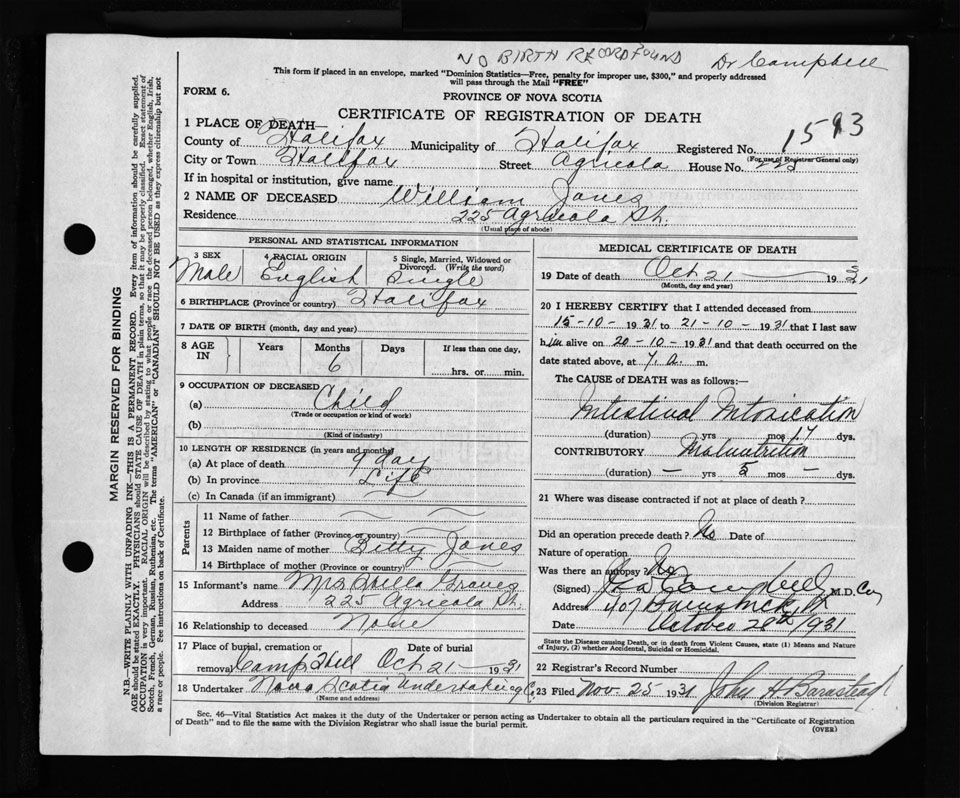 NO BIRTH RECORD FOUND Dr Campbell
This form if placed in an envelope, marked "Dominion Statistics—Free, penalty for improper use, $300," and properly addressed
will pass through the Mail "FREE"
FORM 6.
PROVINCE OF NOVA SCOTIA
CERTIFICATE OF REGISTRATION OF DEATH
1 PLACE OF DEATH—
County of Halifax Municipality of Halifax Registered No. 1593
(For use of Registrar General only)
City or Town Halifax Street Agricola House No. 225
If in hospital or institution, give name
2 NAME OF DECEASED William Jones
Residence 225 Agricola St.
(Usual place of abode)
PERSONAL AND STATISTICAL INFORMATION
3 SEX 4 RACIAL ORIGIN 5 Single, Married, Widowed or Divorced. (Write the word)
Male English Single
6 BIRTHPLACE (Province or country) Halifax
7 DATE OF BIRTH (month, day and year)
8 AGE IN Years Months Days If less than one day,
6 hrs. or min.
9 OCCUPATION OF DECEASED
(a) Child
(Trade or occupation or kind of work)
(b)
(Kind of industry)
10 LENGTH OF RESIDENCE (in years and months)
(a) At place of death 9 day
(b) In province Life
(c) In Canada (if an immigrant)
Parents
11 Name of father
12 Birthplace of father (Province or country)
13 Maiden name of mother Betty Jones
14 Birthplace of mother (Province or country)
15 Informant's name Mrs Graves
Address 225 Agricola St.
16 Relationship to deceased None
17 Place of burial, cremation or removal Date of burial
Camp Hill Oct 21 1931
18 Undertaker Nova Scotia Undertaking Co
(Name and address)
MEDICAL CERTIFICATE OF DEATH
19 Date of death Oct 21 1931
(Month, day and year)
20 I HEREBY CERTIFY that I attended deceased from
15-10- 1931 to 21-10- 1931 that I last saw
him alive on 20-10- 1931 and that death occurred on the
date stated above, at 7. a. m.
The CAUSE OF DEATH was as follows:—
Intestinal Intoxication
(duration) yrs mos 17 dys.
CONTRIBUTORY Malnutrition
(duration) — yrs 5 mos — dys.
21 Where was disease contracted if not at place of death?
Did an operation precede death? No Date of
Nature of operation
Was there an autopsy? No
(Signed) Campbell M.D.
Address 407 Brunswick St
Date October 28th 1931
State the Disease causing Death, or in death from Violent Causes, state (1) Means and Nature
of Injury, (2) whether Accidental, Suicidal or Homicidal.
22 Registrar's Record Number
23 Filed Nov. 25 1931 John H Barnstead
(Division Registrar)
Sec. 46—Vital Statistics Act makes it the duty of the Undertaker or person acting as Undertaker to obtain all the particulars required in the "Certificate of Registration
of Death" and to file the same with the Division Registrar who shall issue the burial permit.
(OVER)
MARGIN RESERVED FOR BINDING
N.B.—WRITE PLAINLY WITH UNFADING INK—THIS IS A PERMANENT RECORD. Every item of information should be carefully supplied.
AGE should be stated EXACTLY. PHYSICIANS should STATE CAUSE OF DEATH in plain terms, so that it may be properly classified. Exact statement of
OCCUPATION is very important. RACIAL ORIGIN will be described by stating to what people or race the deceased person belonged, whether English, Irish,
Scotch, French, German, Russian, Ruthenian, etc. The terms "AMERICAN" or "CANADIAN" SHOULD NOT BE USED as they express citizenship but not
a race or people. See instructions on back of Certificate.